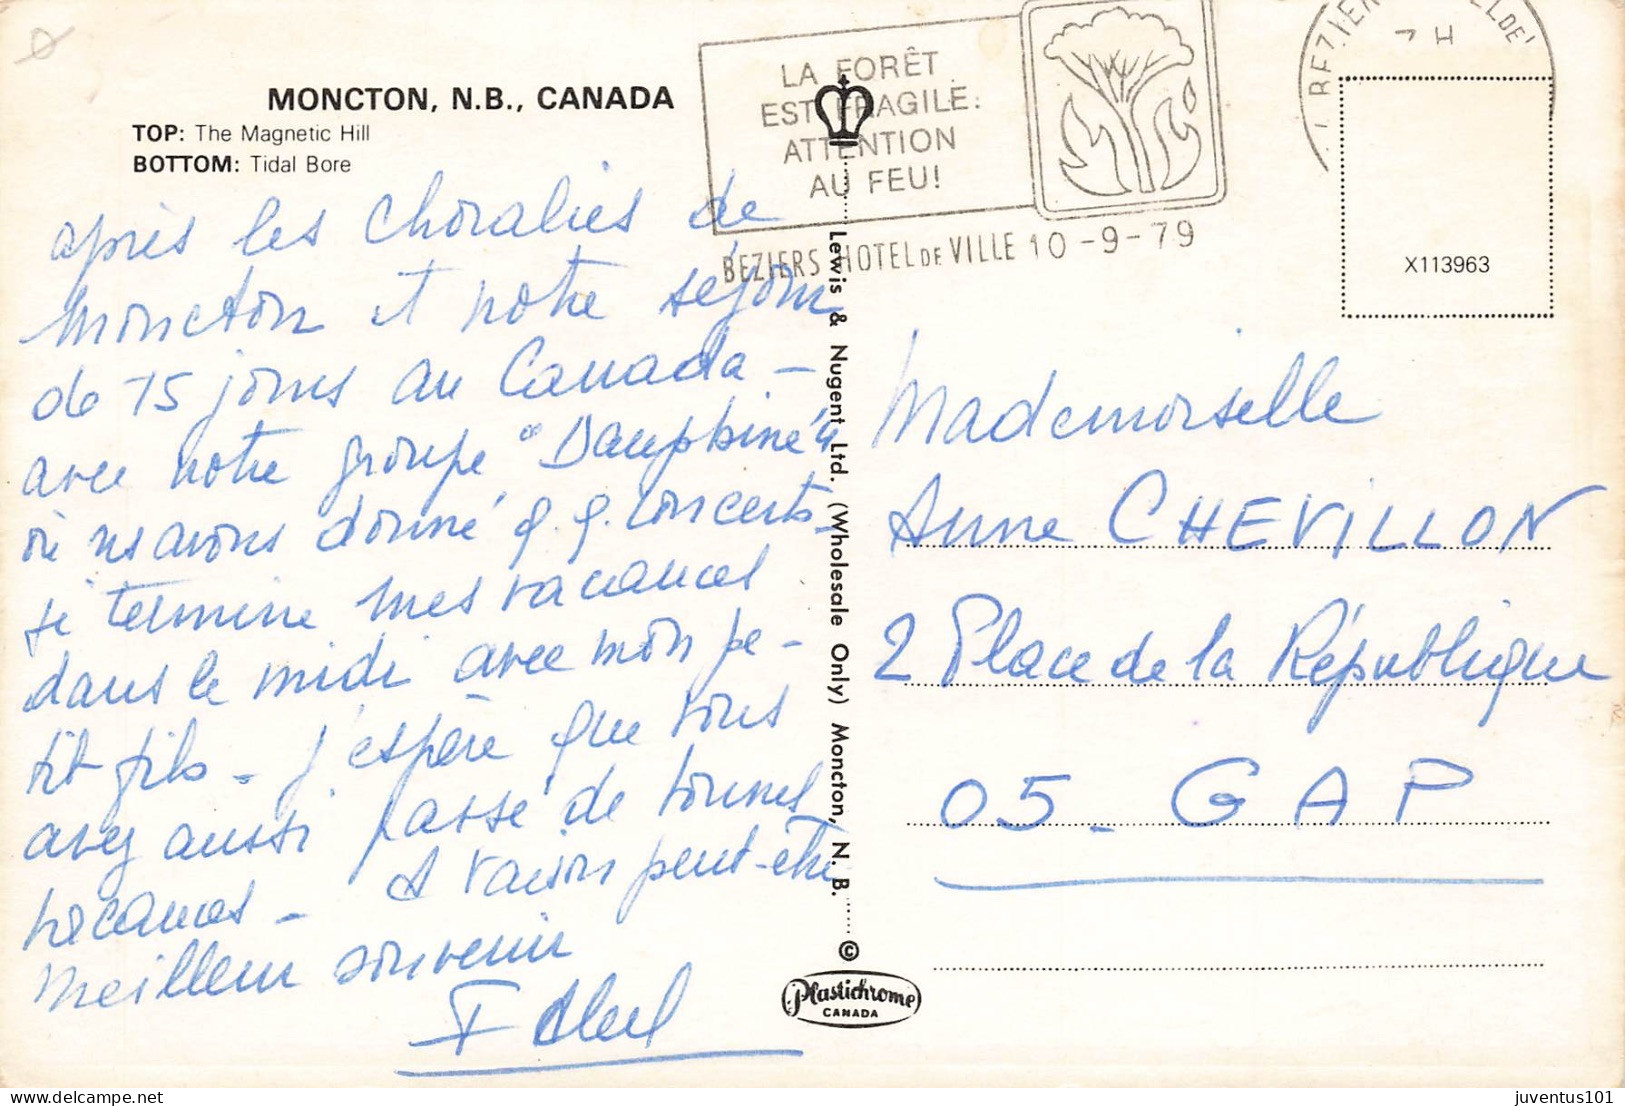 MONCTON, N.B., CANADA
TOP: The Magnetic Hill
BOTTOM: Tidal Bore
LA FORÊT
EST FRAGILE:
ATTENTION
AU FEU!
BEZIERS HOTEL DE VILLE 10-9-79
7 H
X113963
après les choralies de
Moncton et notre séjour
de 15 jours au Canada -
avec notre groupe "Dauphiné"
où ns avons donné q.q. concerts -
je termine mes vacances
dans le midi avec mon pe-
tit fils - j'espère que vous
avez aussi passé de bonnes
vacances - et vaison peut-être
meilleur souvenir
Lewis & Nugent Ltd. (Wholesale Only) Moncton, N. B.
©
Plastichrome
CANADA
Mademoiselle
Anne CHEVILLON
2 Place de la République
05 - GAP
juventus101
delcampe.net